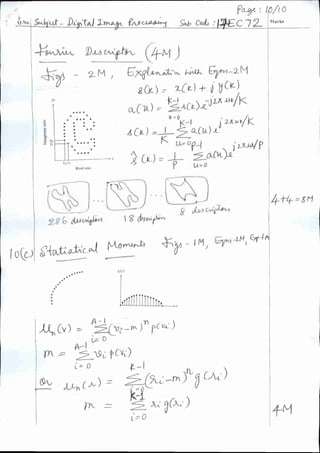 Page : 10/10
Subject - Digital Image Processing Sub Code : 17EC72 Marks
Fourier Descriptor (4M)
Figs - 2M, Explanation with Eqn-2M
s(k) = x(k) + j y(k)
a(u) = K-1 Σ k=0 s(k) e^-j2πuk/K
s(k) = 1/K K-1 Σ u=0 a(u) e^j2πuk/K
ŝ(k) = 1/P P-1 Σ u=0 a(u) e^j2πuk/P
Imaginary axis
Real axis
286 descriptors 18 descriptors 8 descriptors
4+4=8M
10(c) Statistical Moments Figs - 1M, Eqns-2M, Exp-1M
μn(v) = A-1 Σ i=0 (vi-m)^n p(vi)
m = A-1 Σ i=0 vi p(vi)
Or μn(r) = K-1 Σ i=0 (ri-m)^n g(ri)
m = K-1 Σ i=0 ri g(ri)
4M